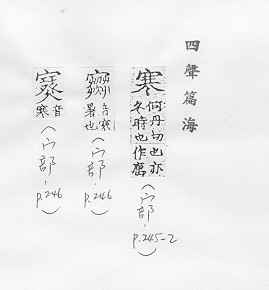 四聲篇海
寒 何丹切也亦冬時也作𡫾
(宀部, p.245-2)
音寒暑也
(宀部, p.246)
音寒
(宀部, p.246)